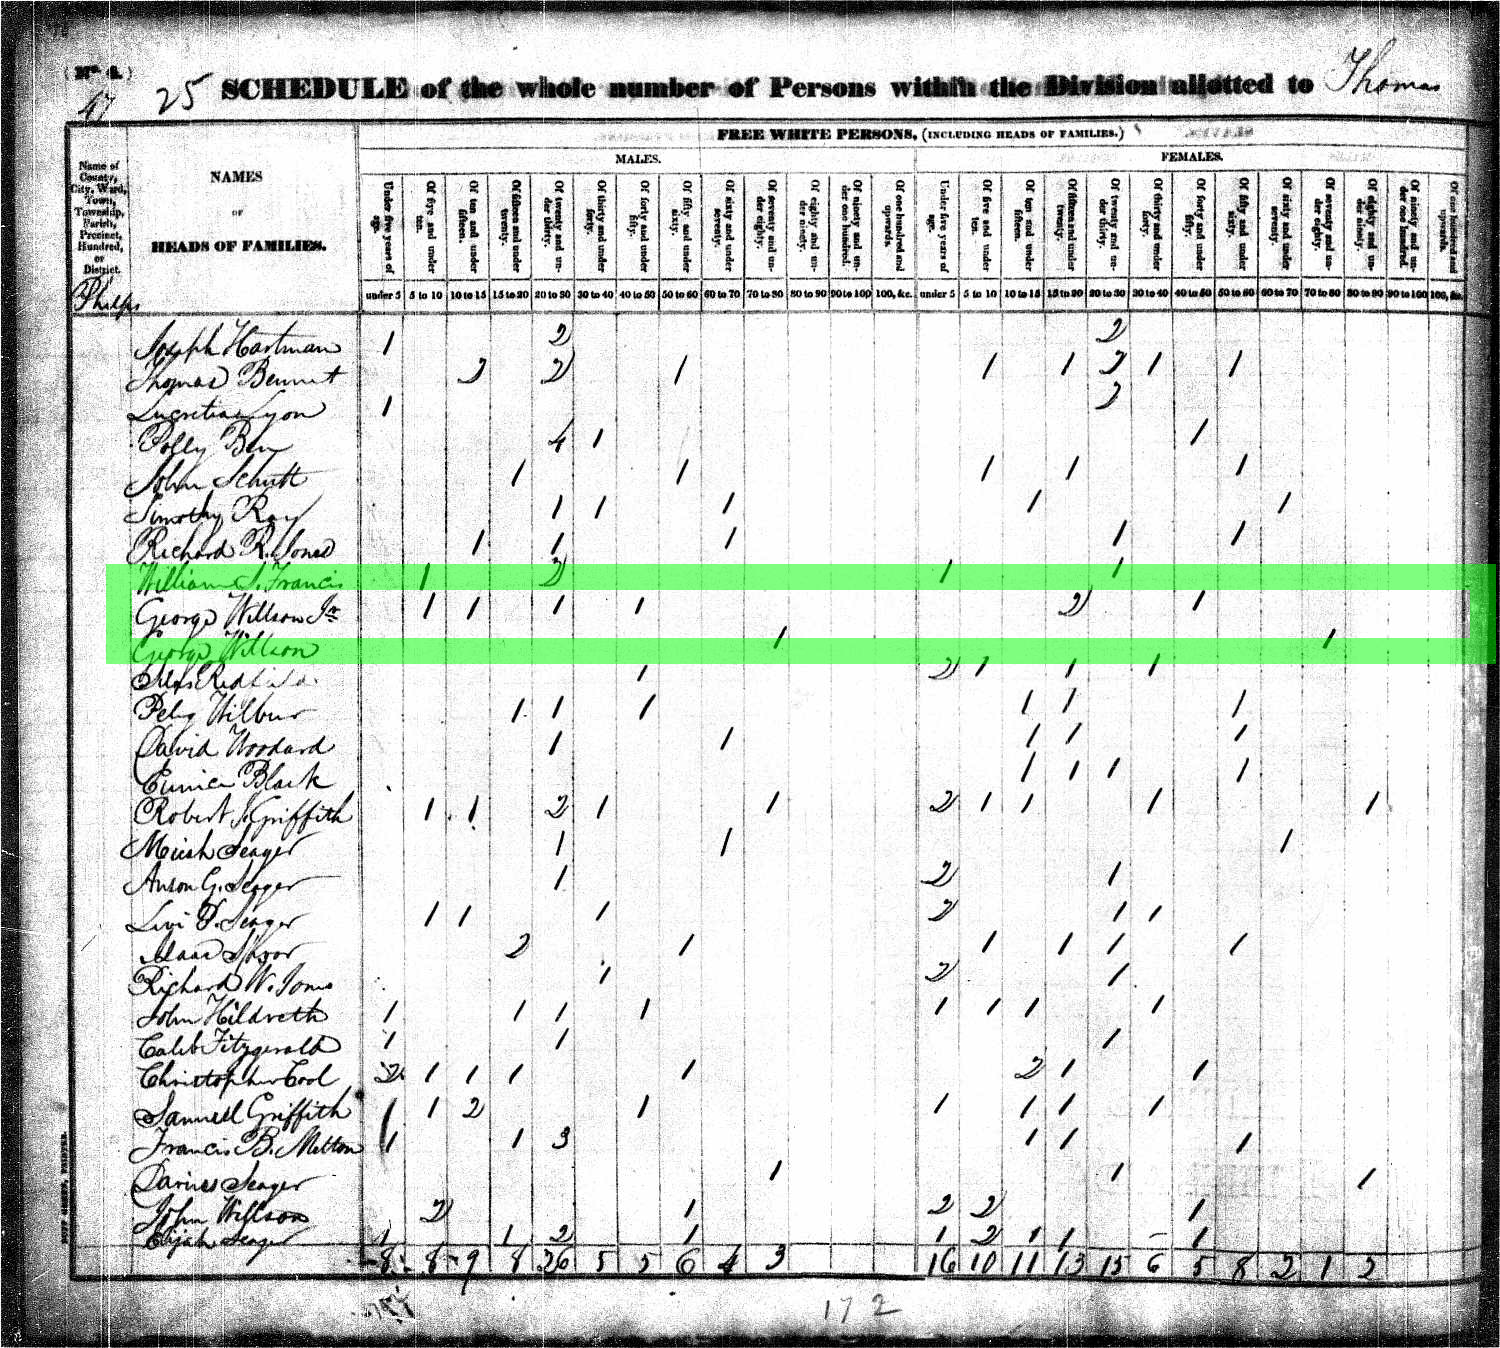 (No. 1.)
47 25 SCHEDULE of the whole number of Persons within the Division allotted to Thomas
FREE WHITE PERSONS, (INCLUDING HEADS OF FAMILIES.)
MALES. FEMALES.
Name of County, City, Ward, Town, Township, Parish, Precinct, Hundred, or District.
NAMES OF HEADS OF FAMILIES.
Under five years of age. Of five and under ten. Of ten and under fifteen. Of fifteen and under twenty. Of twenty and under thirty. Of thirty and under forty. Of forty and under fifty. Of fifty and under sixty. Of sixty and under seventy. Of seventy and under eighty. Of eighty and under ninety. Of ninety and under one hundred. Of one hundred and upwards. Under five years of age. Of five and under ten. Of ten and under fifteen. Of fifteen and under twenty. Of twenty and under thirty. Of thirty and under forty. Of forty and under fifty. Of fifty and under sixty. Of sixty and under seventy. Of seventy and under eighty. Of eighty and under ninety. Of ninety and under one hundred. Of one hundred and upwards.
Phelps under 5 5 to 10 10 to 15 15 to 20 20 to 30 30 to 40 40 to 50 50 to 60 60 to 70 70 to 80 80 to 90 90 to 100 100, &c. under 5 5 to 10 10 to 15 15 to 20 20 to 30 30 to 40 40 to 50 50 to 60 60 to 70 70 to 80 80 to 90 90 to 100 100, &c.
Joseph Hartman 1 2 2
Thomas Bennet 2 2 1 1 1 2 1 1
Lucretia Lyon 1 2
Polly Ben 4 1 1
John Schutt 1 1 1 1 1
Timothy Ray 1 1 1 1 1
Richard R. Jones 1 1 1 1 1
William S. Francis 1 2 1 1
George Willson Jr 1 1 1 1 2 1
George Willson 1 1
Redfield 1 2 1 1 1
Peleg Wilbur 1 1 1 1 1 1
David Woodard 1 1 1 1 1
Eunice Black 1 1 1 1
Robert S. Griffith 1 1 2 1 1 2 1 1 1 1
Micah Seager 1 1 1
Anson G. Seager 1 2 1
Levi D. Seager 1 1 1 2 1 1
Isaac 2 1 1 1 1 1
Richard W. Jones 1 2 1
John Hildreth 1 1 1 1 1 1 1 1
Caleb Fitzgerald 1 1 1
Christopher Cool 2 1 1 1 1 2 1 1
Samuel Griffith 1 1 2 1 1 1 1 1
Francis B. Melton 1 1 3 1 1 1
Darius Seager 1 1 1
John Willson 2 1 2 2 1
Elijah Seager 1 1 2 1 1 2 1 1 1
8 8 9 8 26 5 5 6 4 3 16 10 11 13 15 6 5 8 2 1 2
172